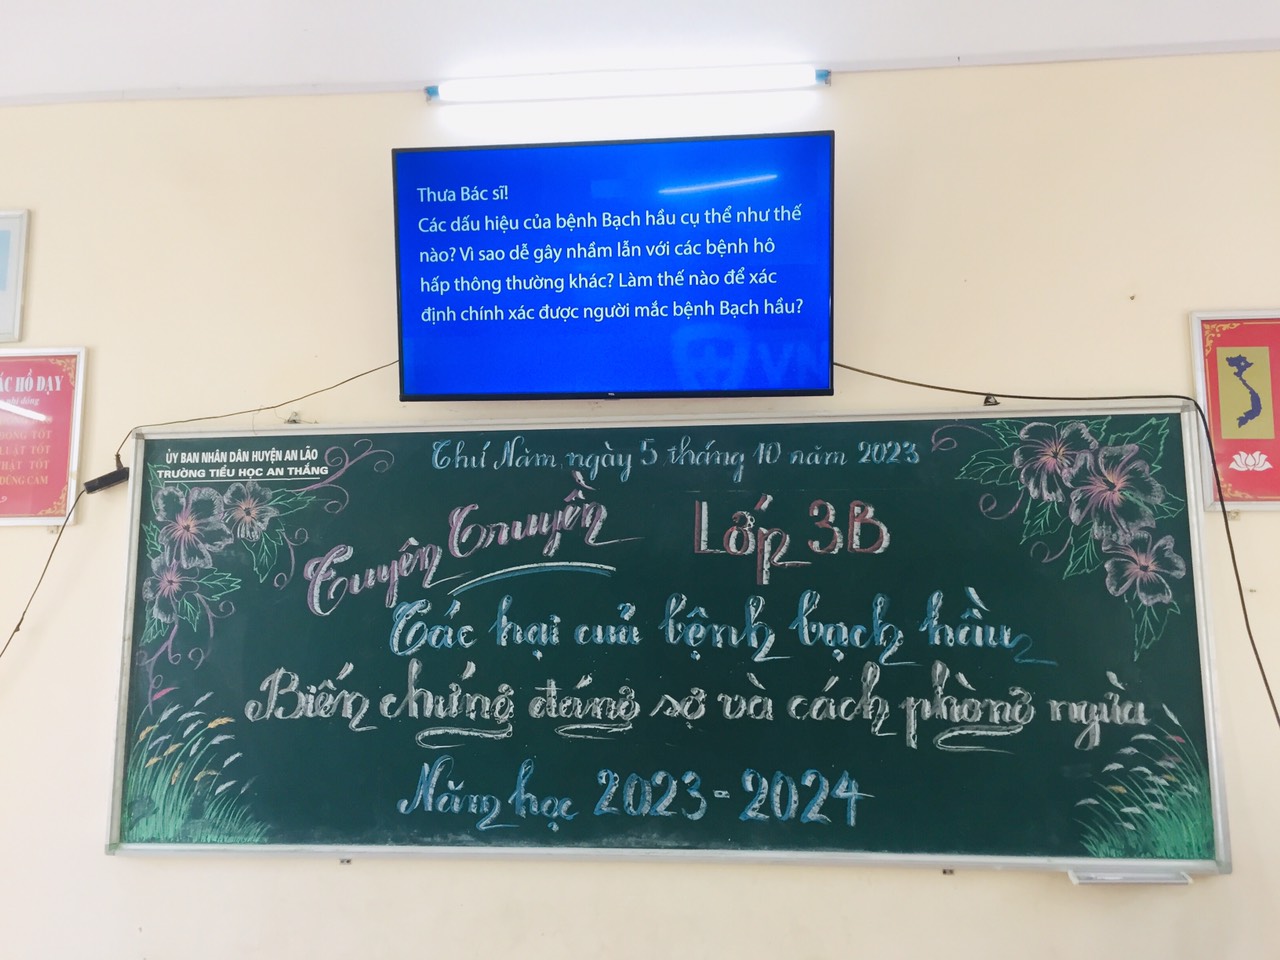 Thưa Bác sĩ!
Các dấu hiệu của bệnh Bạch hầu cụ thể như thế
nào? Vì sao dễ gây nhầm lẫn với các bệnh hô
hấp thông thường khác? Làm thế nào để xác
định chính xác được người mắc bệnh Bạch hầu?
VN
HỒ DẠY
TỐT
TỐT
TỐT
DŨNG CẢM
ỦY BAN NHÂN DÂN HUYỆN AN LÃO
TRƯỜNG TIỂU HỌC AN THẮNG
Thứ Năm, ngày 5 tháng 10 năm 2023
Tuyên Truyền Lớp 3B
Tác hại của bệnh bạch hầu
Biến chứng đáng sợ và cách phòng ngừa
Năm học 2023-2024